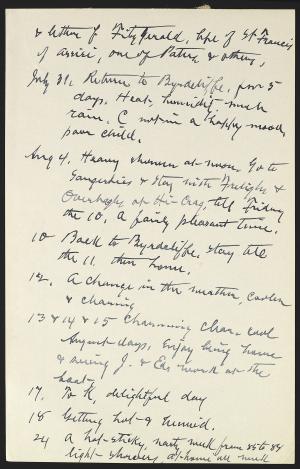 & letters of FitzGerald, life of St Francis
of Assisi, one of Pater, & others,
July 31, Return to Byrdcliffe, for 5
days. Heat, humidity, much
rain. C not in a happy mood,
poor child.
Aug 4. Heavy shower at noon. Go to
Saugerties & stay with &
at Hi-Crag, till Friday
the 10. A fairly pleasant time.
10 Back to Byrdcliffe, stay till
the 11. then home.
12. A change in the weather, cooler
& charming
13 & 14 & 15 Charming clear cool
August days. Enjoy being home
& seeing J. & E's work at the
boat.
17. To K, delightful day
18 Getting hot & humid.
24 A hot-sticky, nasty, muck from 85 to 88
light showers, at home all week